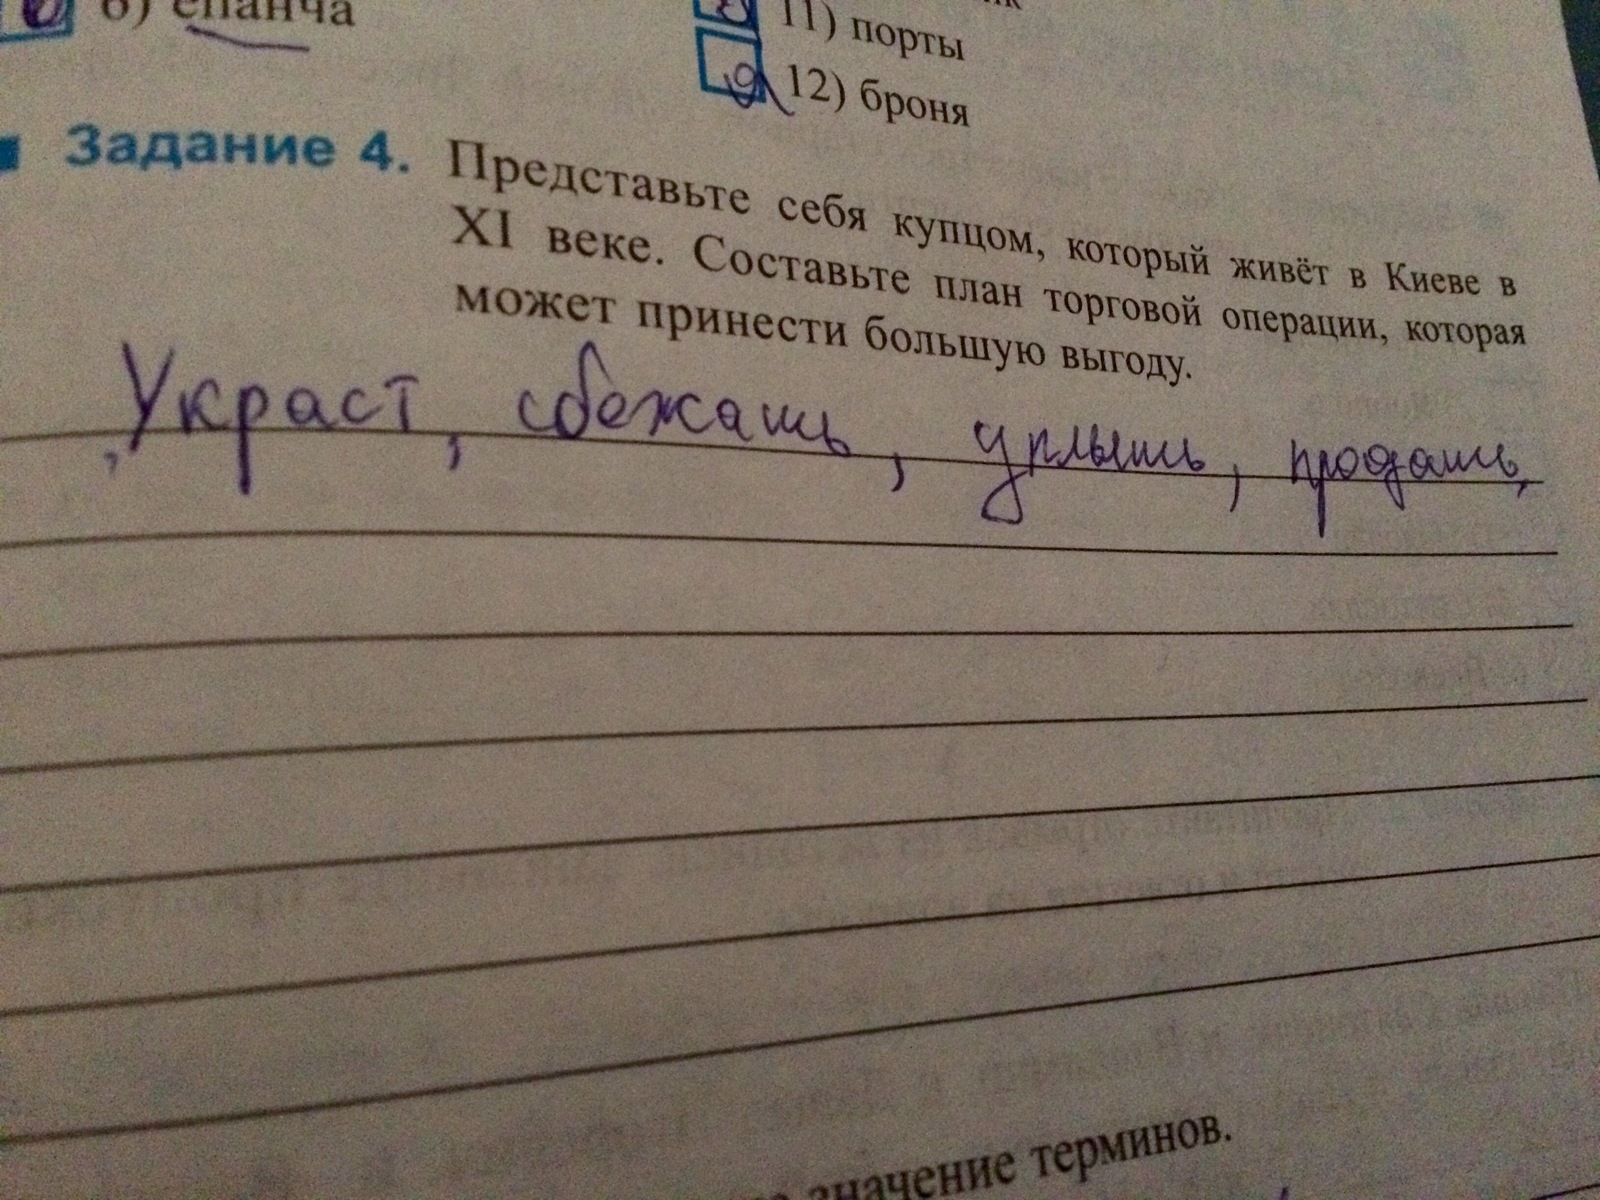 6) епанча
11) порты
12) броня
Задание 4. Представьте себя купцом, который живёт в Киеве в
XI веке. Составьте план торговой операции, которая
может принести большую выгоду.
Украст, сбежать, уплыть, продать,
значение терминов.